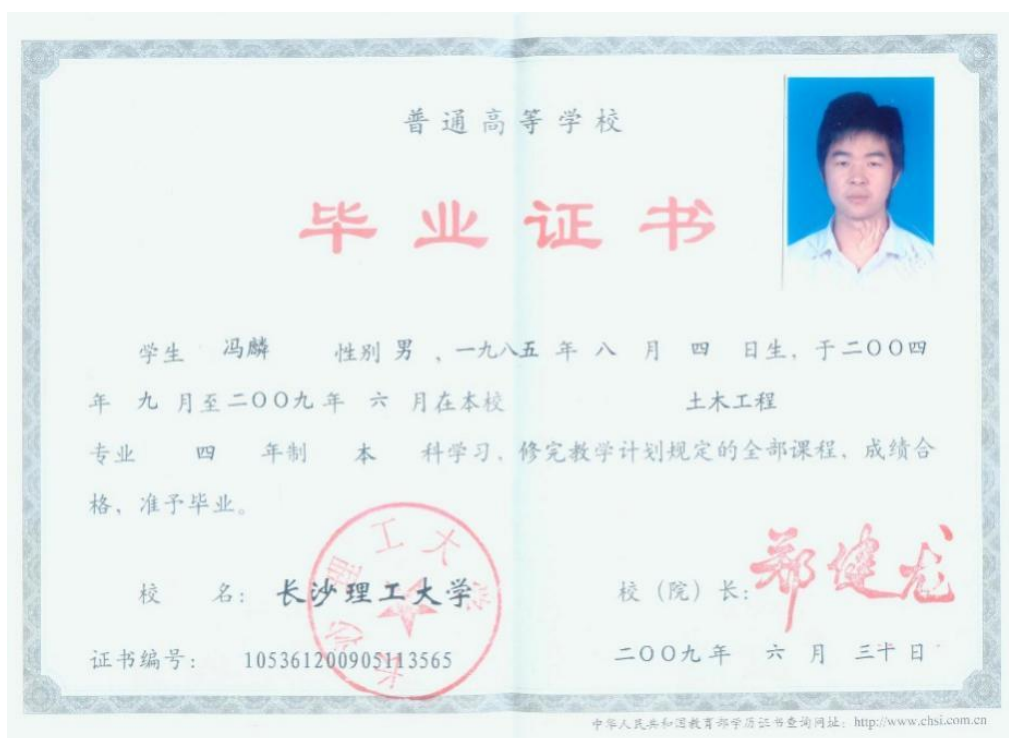 普通高等学校
毕业证书
学生 冯麟 性别 男 ,一九八五 年 八 月 四 日生,于二〇〇四
年 九 月至二〇〇九 年 六 月在本校 土木工程
专业 四 年制 本 科学习,修完教学计划规定的全部课程,成绩合
格,准予毕业。
长沙理工大学
校 名: 长沙理工大学
校(院)长: 郑健龙
证书编号: 105361200905113565
二〇〇九年 六 月 三十 日
中华人民共和国教育部学历证书查询网址:http://www.chsi.com.cn